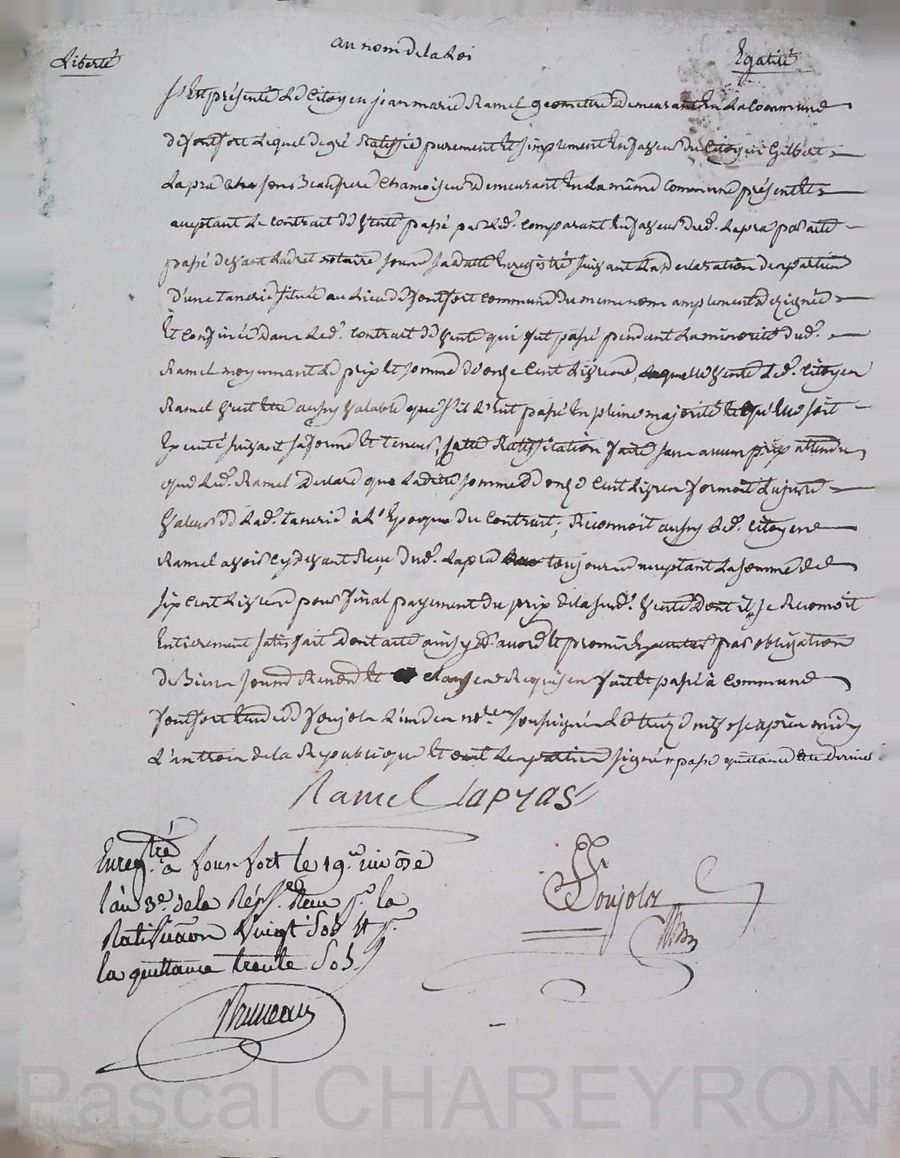 Liberté
au nom de la Loi
Egalité
S'est présenté Le Citoyen jean marie Ramel geomettre Demeurant En La Commune
de fontfort Lequel de gré Ratiffie purement Et simplement En faveur du Citoyen Gilbert
Lapra son Beaufrere Chamoiseur demeurant En La même Commune présent Et
acceptant Le Contrat De Vente passé par Led. Comparant En faveur dud. Lapra par acte
passé devant Ladret notaire sour sa datte Enregistré suivant La declaration des parties
D'une tanerie située au Lieu de fontfort commune du meme nom amplement dezignée
Et Confinée Dans Led. Contrat de Vente qui fut passé pendant La minorité dud.
Ramel moyennant Le prix Et somme de onze Cent Livres, Laquelle Vente Led. Citoyen
Ramel Veut Etre aussy Valable que s'il L'eut passé En pleine majorité Et qu'elle soit
Executé suivant sa forme Et teneur, Cette Ratiffication faite sans aucun prix attendu
que Led. Ramel Declare que Ladite somme de onze Cent Livres formoit La juste
Valeur de Lad. tanerie à L'Epoque du Contrat; Reconnoit aussy Led. Citoyen
Ramel avoir cy devant Reçu dud. Lapra toujours acceptant La somme de
six Cent Livres pour final payement du prix de la sud. Vente Dont il se Reconnoit
Entierement satisfait Dont acte ainsy accordé Et promis Executer par obligation
de Biens soumis Renon Et clauses Requises fait Et passé à Commune
fontfort Etude de foujols L'un des nores soussignés Le treize nivose après midy
L'an trois de la Republique Et ont Les parties signé passé quittance
Ramel Lapras
Enregtré à fonfort le 19e nivôse
l'an 3e de la Rép. Reçu pr. la
Ratification Vingt Sols Et pr.
la quittance trente Sols
foujols
Bruneau
Pascal CHAREYRON